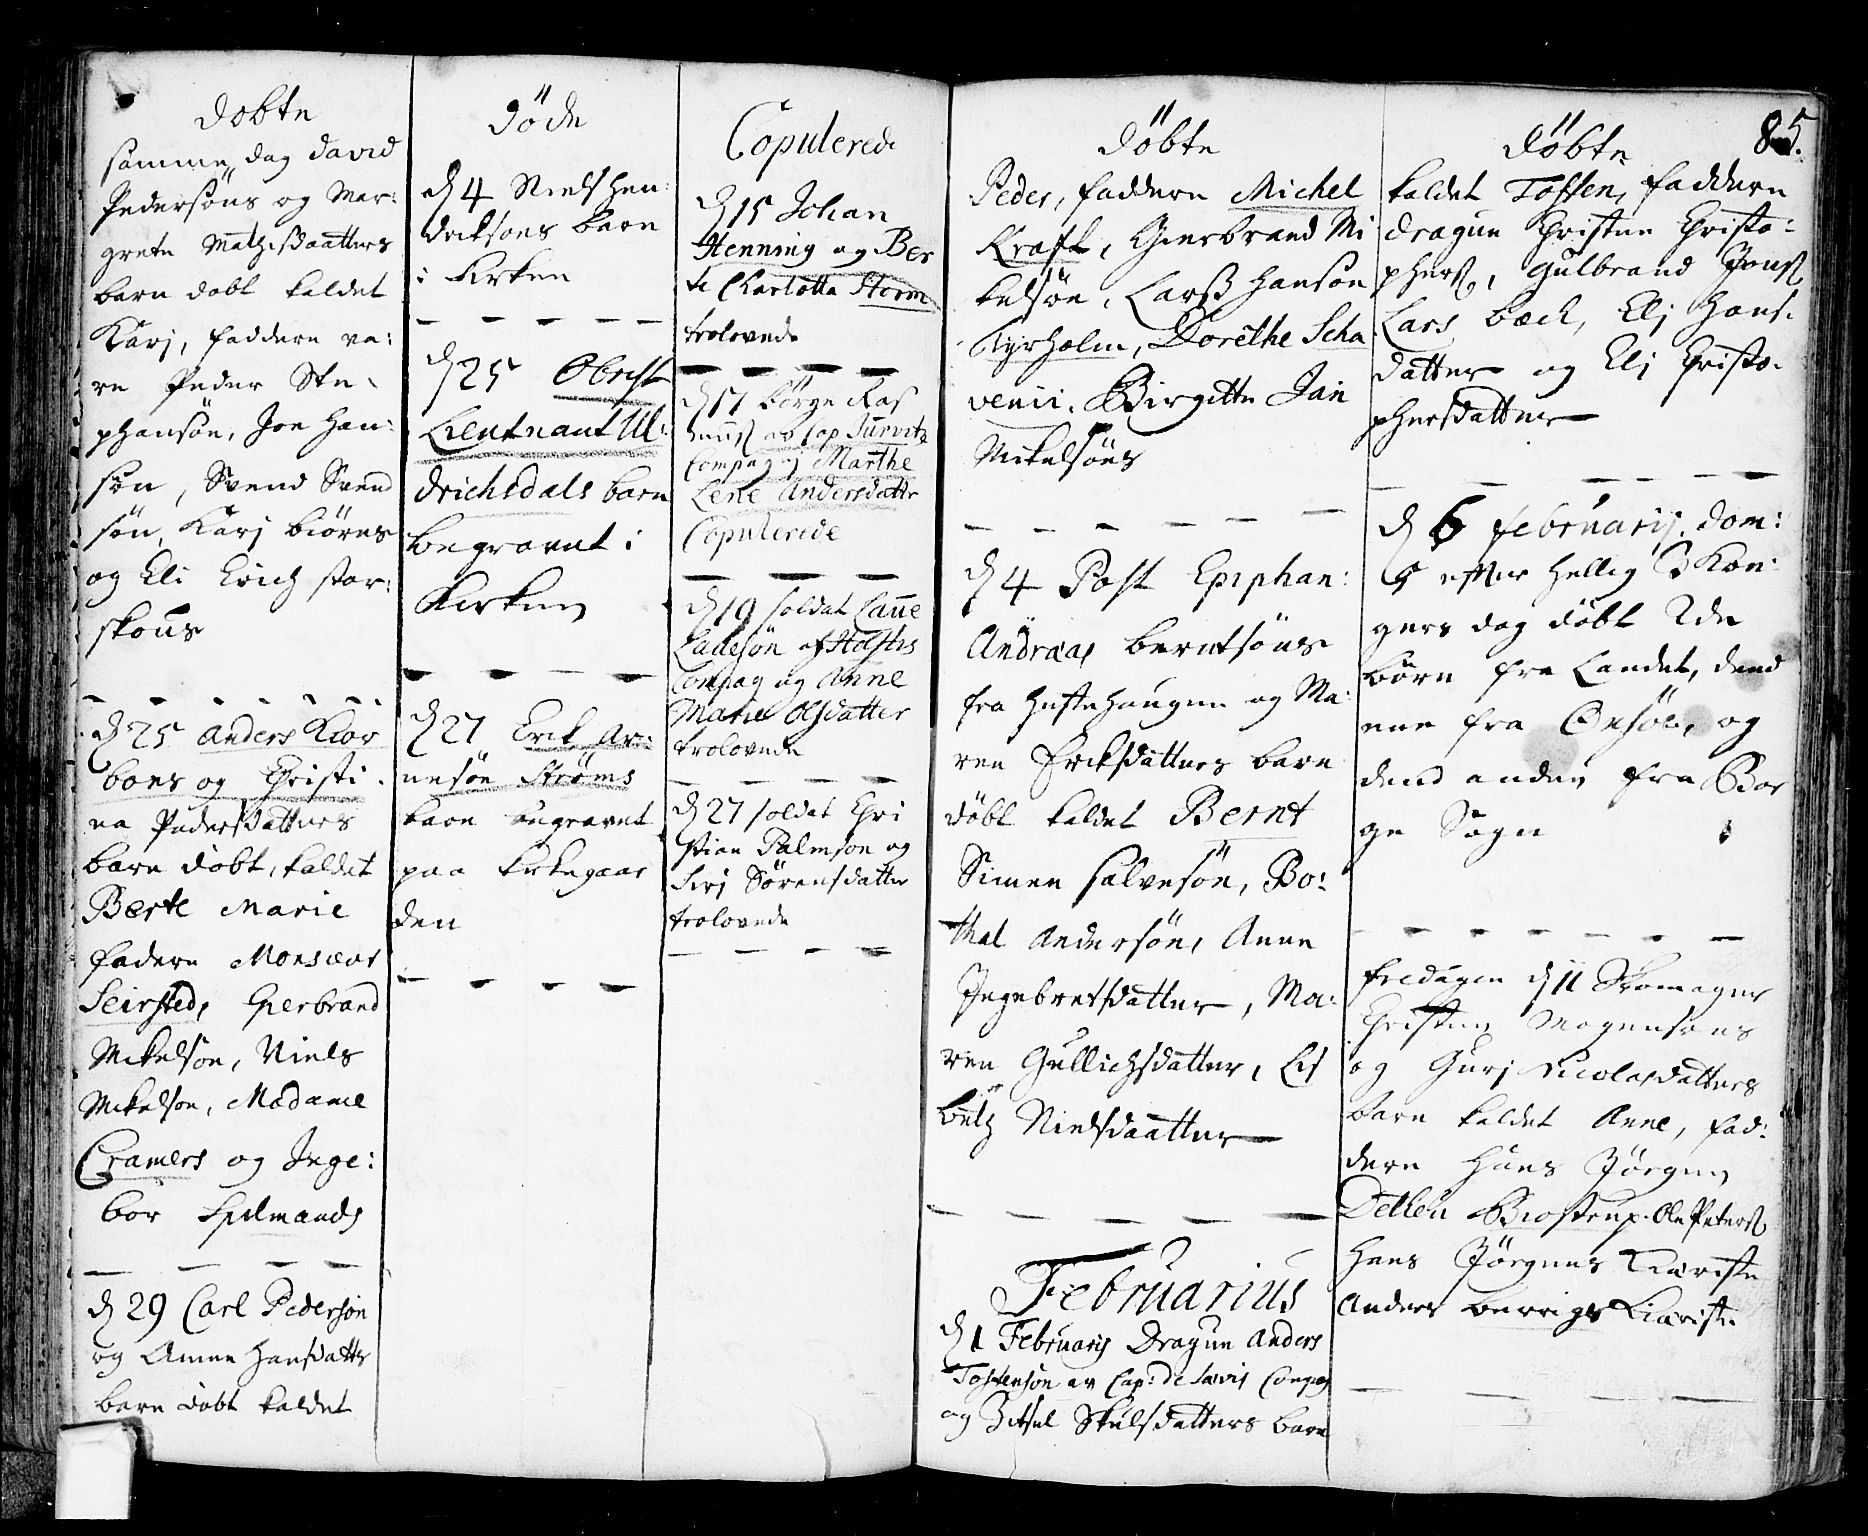 Döbte
samme dag David
Pedersöns og Mar:
grete Mathisdaatters
barn döbt kaldet
Karj, faddere va:
re Peder Ste:
phansön, Jon Han:
sön, Svend Svend
sön, Karj biörns
og Eli Erich
skous
d 25 Anders
boes og Christi:
na Pedersdatters
barn döbt, kaldet
Berte Marie
fadere Monsieur
Seirsted, Gierbrand
Mikelsön, Niels
Mikelsön, Madame
Cramers og Inge:
bor Spilmands
d 29 Carl Pedersön
og Anne Hansdatts
barn döbt kaldet
Döde
d 4 Niels Hen:
driksöns barn
i Kirken
d 25 Obrist
Lieutnant Ul:
drichsdals barn
begravet i
Kirken
d 27 Erik Ar:
nesön Ströms
barn begravet
paa Kirkegaar
den
Copulerede
d 15 Johan
Henning og Ber
te Charlotta Storm
trolovede
d 17 Börge Ras
muss av Cap
Compag og Marthe
Lene Andersdattr
Copulerede
d 19 soldat
Ladesön af
Compag og Anne
Marie Olsdatter
trolovede
d 27 soldat Chri
stian Palmsön og
Sirj Sörensdatter
trolovede
Döbte
Peder, faddere Michel
Kraft, Gierbrand Mi
kelsön, Larss Hansön
Kyrholm, Dorethe Scha
venii, Birgitte Jan
Mikelsöns
d 4 Post Epiphan:
Andreas berntsöns
fra Hestehaugen og Ma:
ren Eriksdatters barn
döbt kaldet Bernt
Simen Salvesön, Bo:
thel Andersön, Anne
Ingebretsdatter, Ma:
ren Gullichsdatter, Lis
beth Nielsdaatter
Februarius
d 1 Februarij Dragun Anders
Tostensön av Cap: de Compag
og Zitsel Skulsdatters barn
85.
Döbte
kaldet Tosten, faddere
Dragun Christen Christo:
phers, Gulbrand Jons
Lars Bech, Elj Hans:
datter og Elj Christo:
phersdatter
d 6 februarij. Dom:
5 efter Hellig 3 Kon:
gers dag döbt 2de
börn fra Landet, dend
ene fra Onsöe, og
dend anden fra Bor
ge Sogn
fredagen d 11 Skomager
Christen Mogensöns
og Gurj Nicolasdatters
barn kaldet Anne, fad:
dere Hans Jörgen
Detleu Brostrup. Ole Peters
Hans Jörgens Kiæriste
Anders berrigs Kiæriste